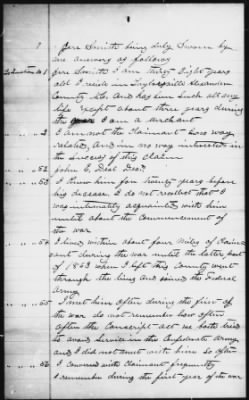 Jere Smith being duly Sworn by
me answers as follows
Jere Smith I am thirty Eight years
old I reside in Taylorsville Alexander
County N.C. and has been such all my
life except about three years during
the war I am a merchant
2 I am not the Claimant's no way
related, And in no way interested in
the success of this claim
John C, Deal Decd
53 I knew him for twenty years before
his decease. I do not recollect that I
was intimately acquainted with him
until about the Commencement of
the war
54 I lived within about four miles of Claim
ant during the war until the latter part
of 1863 when I left this County went
through the lines and joined the Federal
Army
55 I met him often during the first of
the war do not remember how often
After the Conscript act we both tried
to avoid service in the Confederate Army
and I did not meet with him so often
56 I conversed with Claimant frequently
I remember during the first year of the war